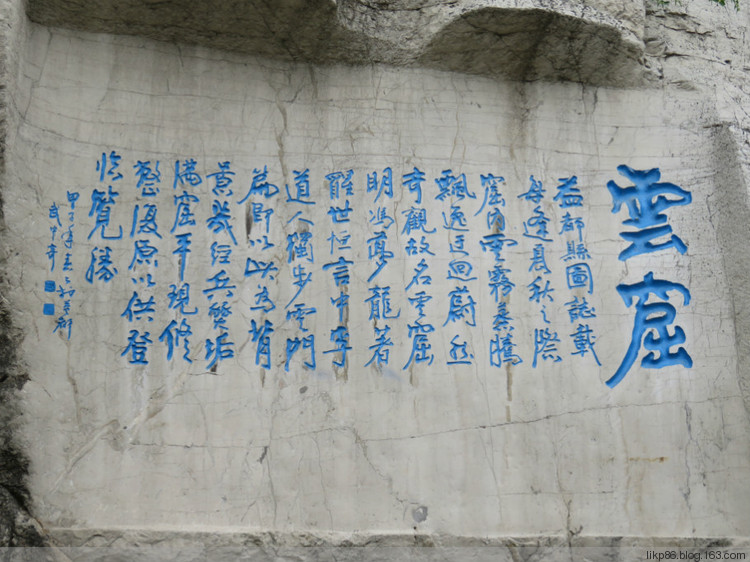 雲窟
益都縣圖誌載
每逢夏秋之際
窟内雲霧蒸騰
飄逸迂回蔚然
奇觀故名雲窟
明馮夢龍著
醒世恒言中李
道人獨步雲門
篇即以此為背
景幾經兵燹垢
满窟平現修
整復原以供登
临覽勝
甲子年
武中奇
likp86.blog.163.com